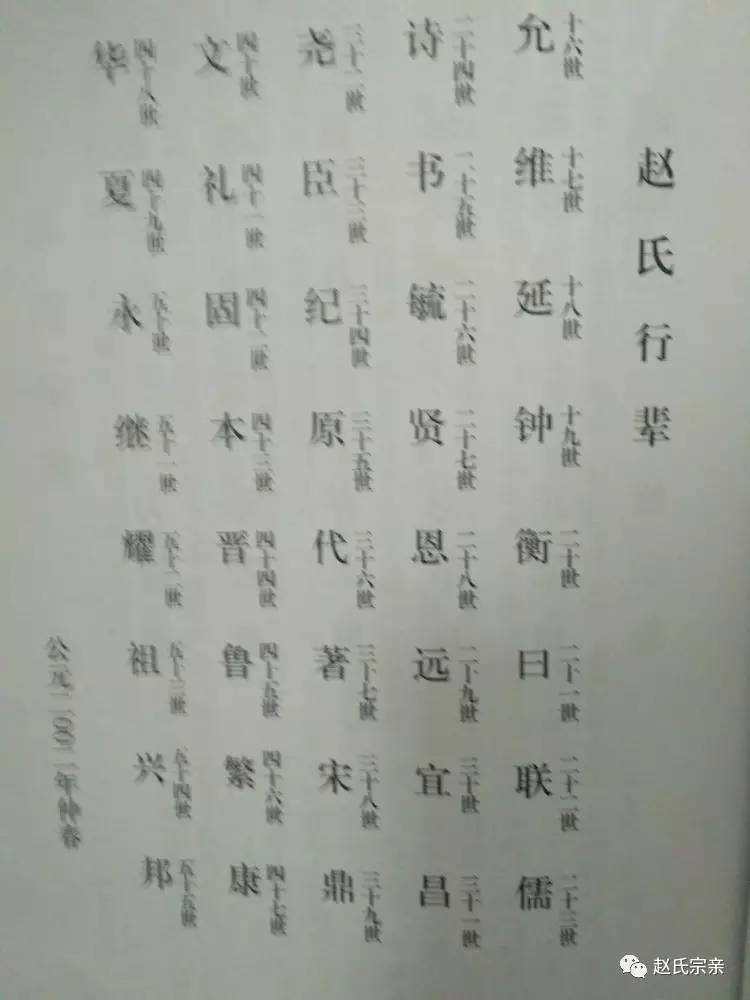 赵氏行辈
允 十六世
维 十七世
延 十八世
钟 十九世
衡 二十世
曰 二十一世
联 二十二世
儒 二十三世
诗 二十四世
书 二十五世
毓 二十六世
贤 二十七世
恩 二十八世
远 二十九世
宜 三十世
昌 三十一世
尧 三十二世
臣 三十三世
纪 三十四世
原 三十五世
代 三十六世
著 三十七世
宋 三十八世
鼎 三十九世
文 四十世
礼 四十一世
固 四十二世
本 四十三世
晋 四十四世
鲁 四十五世
繁 四十六世
康 四十七世
华 四十八世
夏 四十九世
永 五十世
继 五十一世
耀 五十二世
祖 五十三世
兴 五十四世
邦 五十五世
公元二〇〇二年仲春
赵氏宗亲